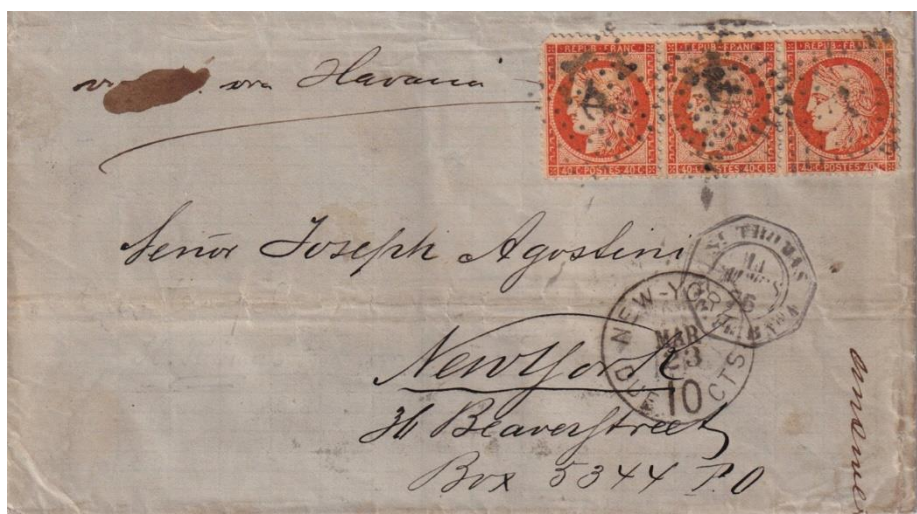 via Havana
REPUB·FRANC
40 C·POSTES·40 C
REPUB·FRANC
40 C·POSTES·40 C
REPUB·FRANC
40 C·POSTES·40 C
Señor Joseph Agostini
NEW-YORK
MAR
23
DUE 10 CTS
New York
36 Beaverstreet
Box 5344 P.O